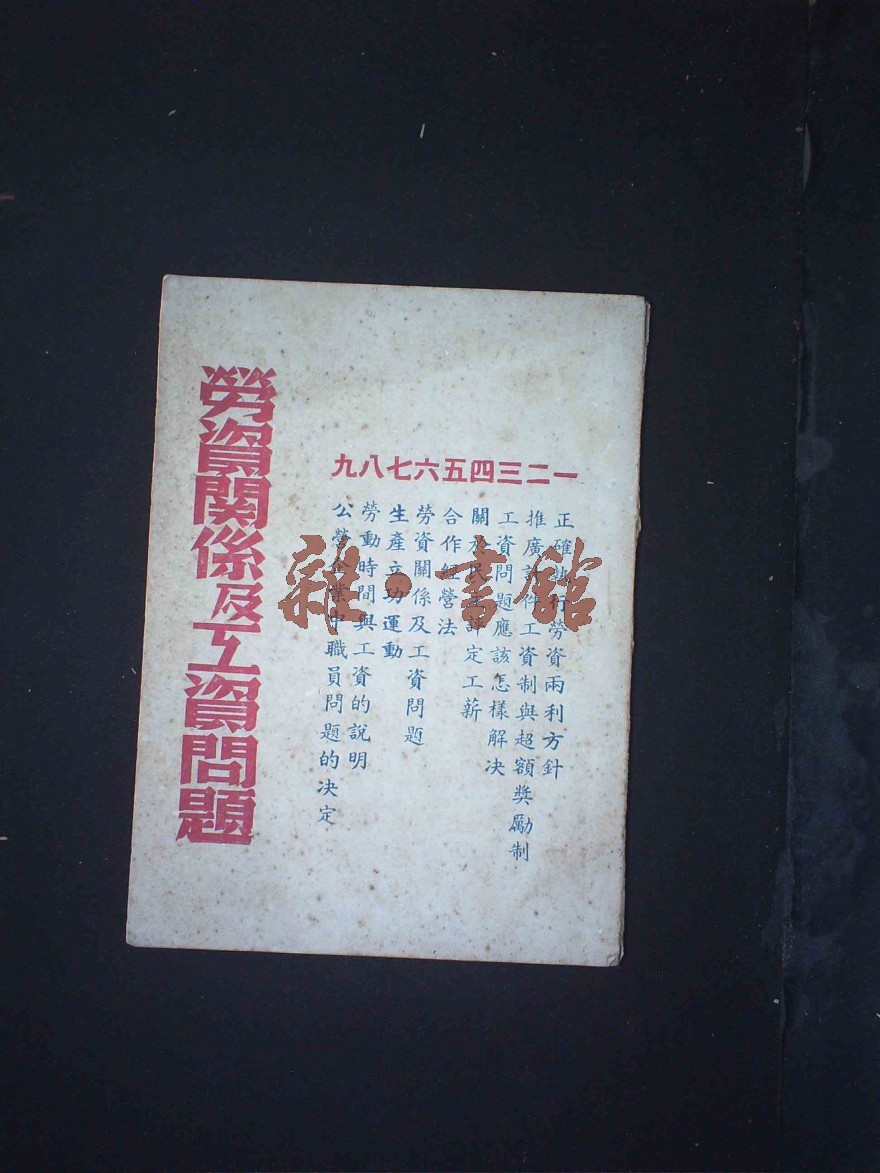 勞資關係及工資問題
一二三四五六七八九
正確執行勞資兩利方針
推廣計件工資制與超額獎勵制
工資問題應該怎樣解决
關於民主評定工薪
合作經營法
勞資關係及工資問題
生產立功運動
勞動時間與工資的說明
公營企業中職員問題的决定
雜·書館